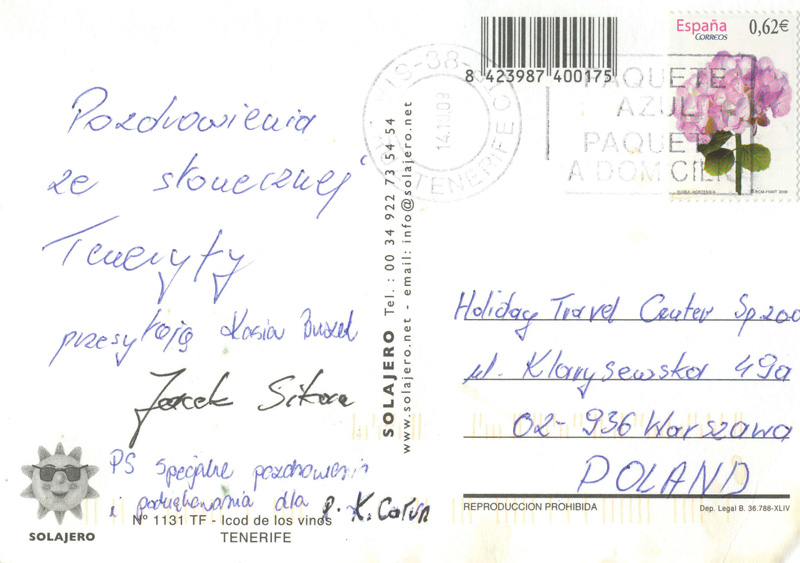 España 0,62€
CORREOS
8 423987 400175
TENERIFE
PAQUETE
AZUL
PAQUETE
A DOMICILIO
Pozdrowienia
ze słonecznej
Teneryfy
przesyłają Kasia
Jacek
PS specjalne pozdrowienia
i podziękowania dla p. K.
Nº 1131 TF - Icod de los vinos
TENERIFE
SOLAJERO
SOLAJERO Tel.: 00 34 922 73 54 54
www.solajero.net - email: info@solajero.net
Holiday Travel Center Sp. zoo
ul. Klarysewska 49a
02-936 Warszawa
POLAND
REPRODUCCION PROHIBIDA
Dep. Legal B. 36.788-XLIV